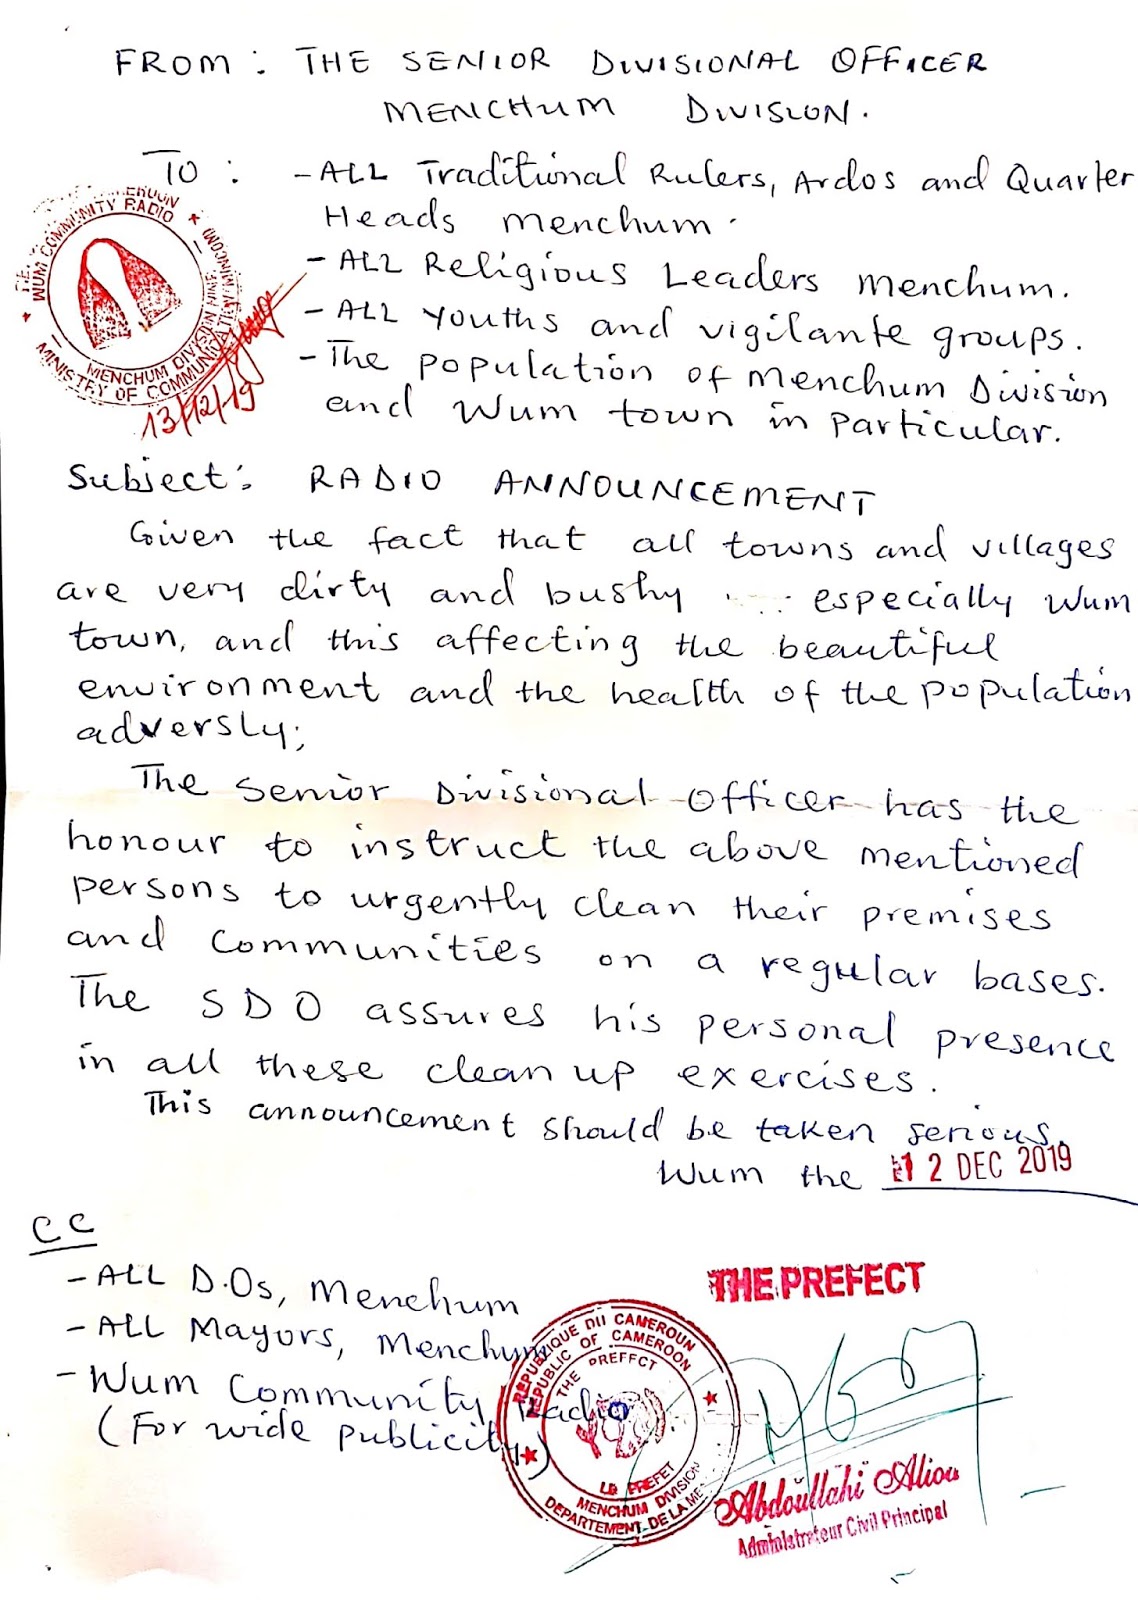 FROM: THE SENIOR DIVISIONAL OFFICER
MENCHUM DIVISION.
TO: - ALL Traditional Rulers, Ardos and Quarter
Heads menchum.
- ALL Religious Leaders menchum.
- ALL youths and vigilante groups.
- The population of menchum Division
and Wum town in particular.
WUM COMMUNITY RADIO
MENCHUM DIVISION
MINISTRY OF COMMUNICATION
13/12/19
Subject: RADIO ANNOUNCEMENT
Given the fact that all towns and villages
are very dirty and bushy .... especially Wum
town, and this affecting the beautiful
environment and the health of the population
adversly;
The Senior Divisional Officer has the
honour to instruct the above mentioned
persons to urgently clean their premises
and communities on a regular bases.
The SDO assures his personal presence
in all these clean up exercises.
This announcement should be taken serious.
Wum the 12 DEC 2019
CC
- ALL D.Os, Menchum
- ALL Mayors, Menchum
- Wum Community Radio
(For wide publicity)
THE PREFECT
REPUBLIQUE DU CAMEROUN
REPUBLIC OF CAMEROON
THE PREFECT
LE PREFET
MENCHUM DIVISION
DEPARTEMENT DE LA ME
Abdoullahi Aliou
Administrateur Civil Principal